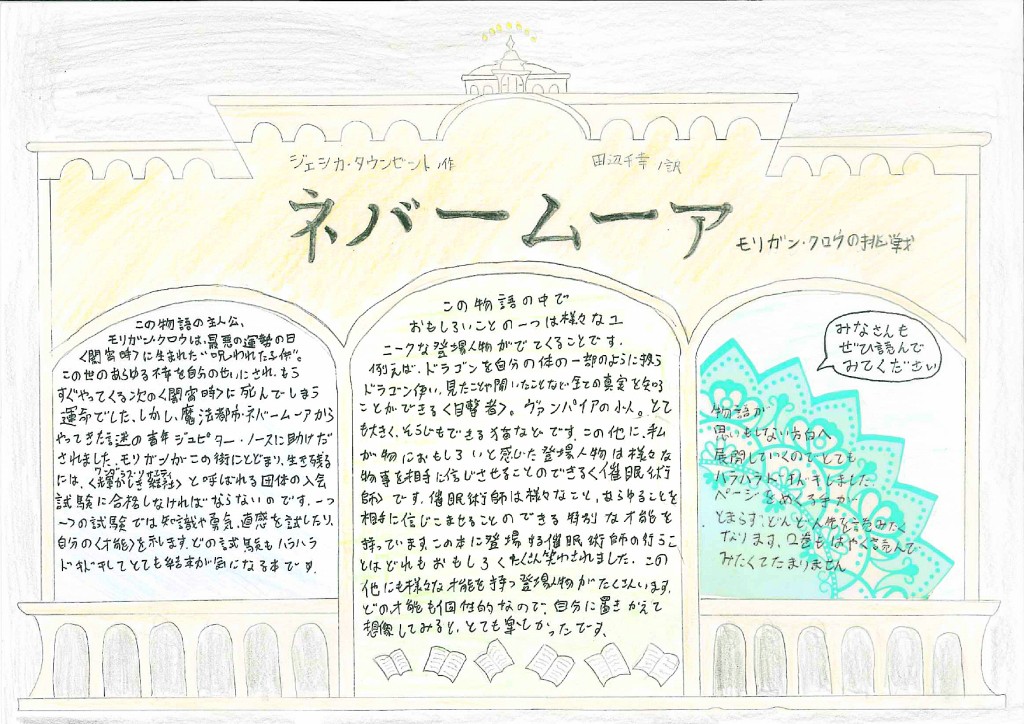 ジェシカ・タウンゼント 作
田辺千幸 訳
ネバームーア
モリガン・クロウの挑戦
この物語の主人公、
モリガン・クロウは、最悪の運勢の日
〈闇宵時〉に生まれた"呪われた子供"。
この世のあらゆる不幸を自分のせいにされ、もう
すぐやってくる次の〈闇宵時〉に死んでしまう
運命でした。しかし、魔法都市・ネバームーアから
やってきた 青年 ジュピター・ノースに助けだ
されました。モリガンがこの街にとどまり、生き残る
には、〈輝かしき結社〉と呼ばれる団体の入会
試験に合格しなければならないのです。一つ
一つの試験では知識や勇気、直感を試したり、
自分の〈才能〉を示します。どの試験もハラハラ
ドキドキしてとても結末が気になる本です。
この物語の中で
おもしろいことの一つは様々なユ
ニークな登場人物がでてくることです。
例えば、ドラゴンを自分の体の一部のように扱う
ドラゴン使い、見たことや聞いたことなど全ての真実を知る
ことができる〈目撃者〉。ヴァンパイアの小人。とて
も大きく、そうじもできる猫などです。この他に、私
が特におもしろいと感じた登場人物は様々な
物事を相手に信じさせることのできる〈催眠術
師〉です。催眠術師は様々なこと、あらゆることを
相手に信じこませることのできる特別な才能を
持っています。この本に登場する催眠術師の行うこ
とはどれもおもしろくたくさん笑わされました。この
他にも様々な才能を持つ登場人物がたくさんいます。
どの才能も個性的なので、自分に置きかえて
想像してみると、とても楽しかったです。
みなさんも
ぜひ読んで
みてください
物語が
思いもしない方向へ
展開していくのでとても
ハラハラドキドキしました。
ページをめくる手が
とまらず、どんどん先を読みたく
なります。2巻もはやく読んで
みたくてたまりません